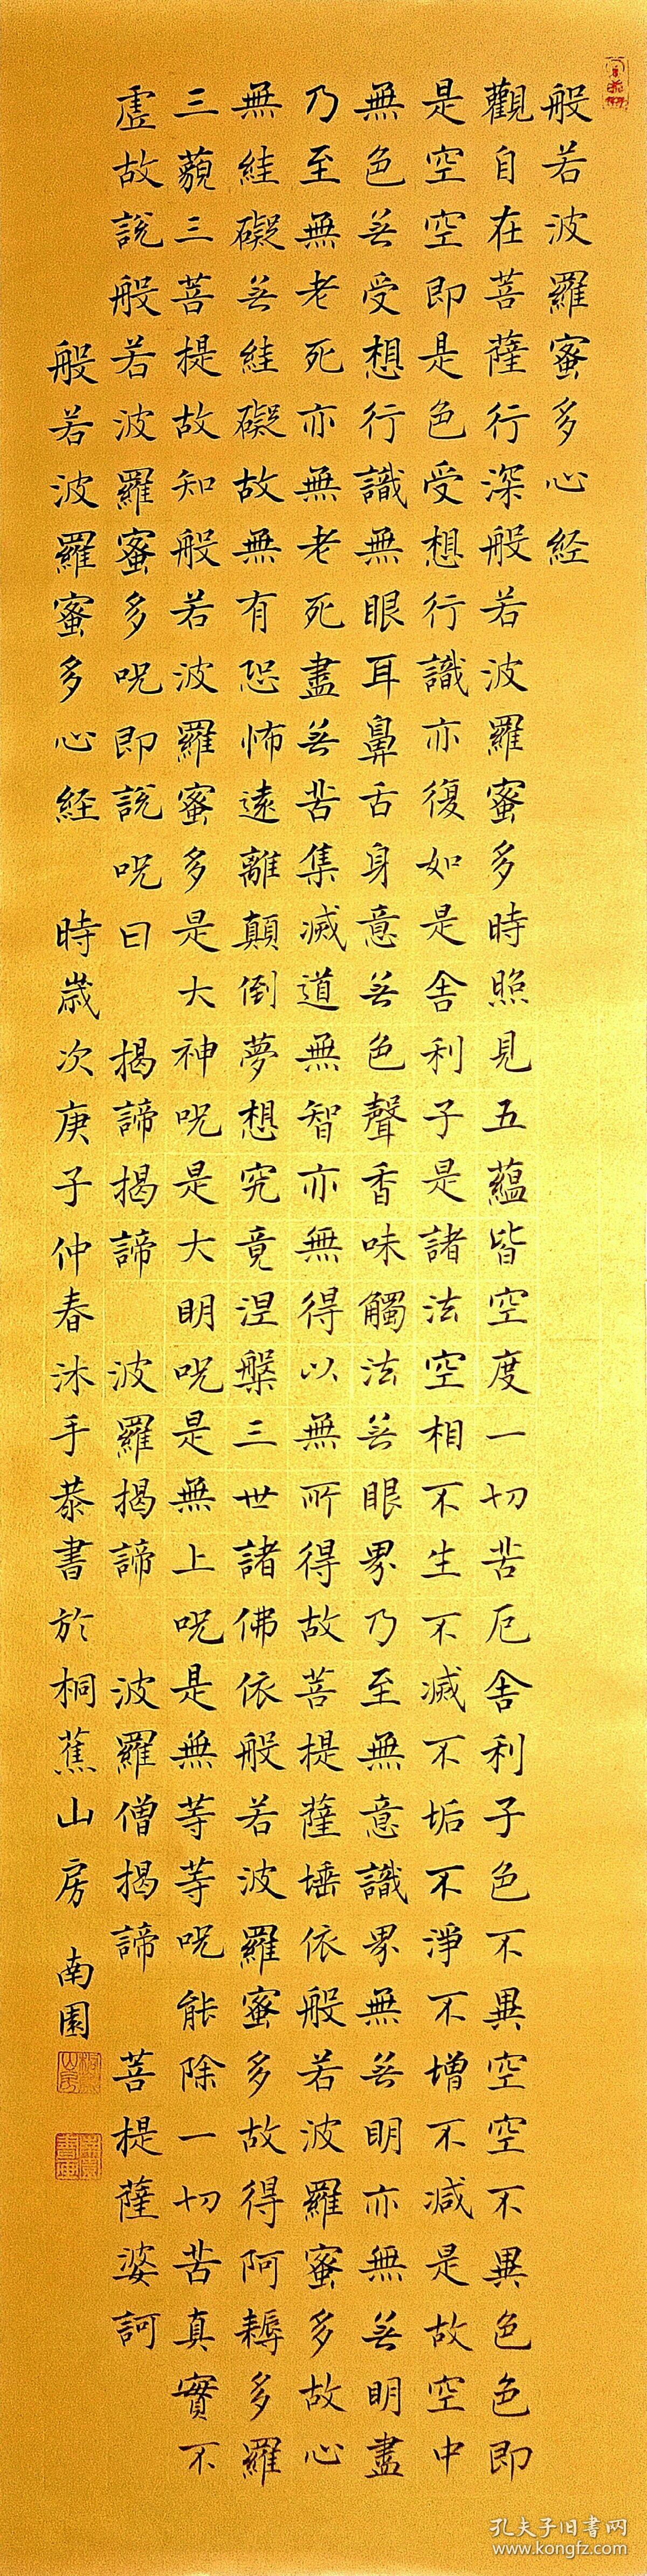 般若波羅蜜多心経
觀自在菩薩行深般若波羅蜜多時照見五蘊皆空度一切苦厄舍利子色不異空空不異色色即
是空空即是色受想行識亦復如是舍利子是諸法空相不生不滅不垢不淨不增不減是故空中
無色无受想行識無眼耳鼻舌身意无色聲香味觸法无眼界乃至無意識界無无明亦無无明盡
乃至無老死亦無老死盡无苦集滅道無智亦無得以無所得故菩提薩埵依般若波羅蜜多故心
無絓礙无絓礙故無有恐怖遠離顛倒夢想究竟涅槃三世諸佛依般若波羅蜜多故得阿耨多羅
三藐三菩提故知般若波羅蜜多是大神呪是大明呪是無上呪是無等等呪能除一切苦真實不
虛故説般若波羅蜜多呪即説呪曰 揭諦揭諦 波羅揭諦 波羅僧揭諦 菩提薩婆訶
般若波羅蜜多心経 時歲次庚子仲春沐手恭書於桐蕉山房 南園
孔夫子旧书网
www.kongfz.com